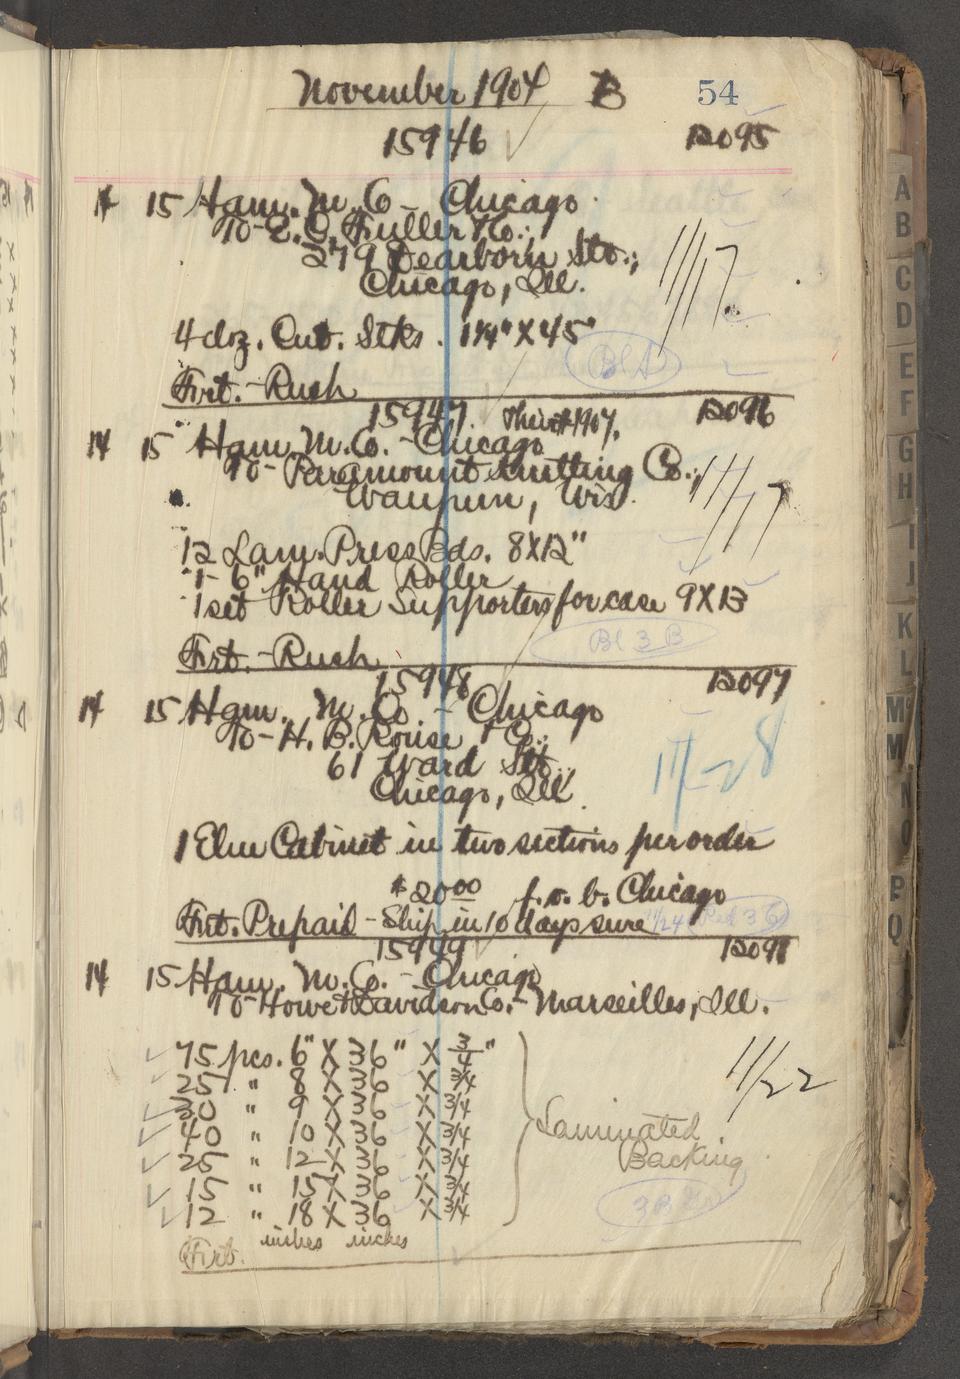 November 1904 B 54
15946 B095
14 15 Ham. M. Co - Chicago
To - E. C. Fuller & Co.;
279 Dearborn Str.;
Chicago, Ill.
11/17
4 doz. Cut. Stks. 1 1/4" X 45"
Frt. - Rush
15947. B096
14 15 Ham. M. Co. - Chicago
To - Paramount Knitting Co.;
Waupun, Wis.
11/17
12 Lam. Press Bds. 8X12"
1 - 6" Hand Roller
1 set Roller Supporters for case 9X13
Bl 3 B
Frt. - Rush
15948 B097
14 15 Ham. M. Co. - Chicago
To - H. B. Rouse & Co.;
61 Ward Str.;
Chicago, Ill.
11-28
1 Elm Cabinet in two sections per order
$20.00 f.o.b. Chicago
Frt. Prepaid - Ship in 10 days sure 11/24
15949 B098
14 15 Ham. M. Co. - Chicago
To - Howe & Davidson Co. - Marseilles, Ill.
75 pcs. 6" X 36" X 3/4"
25 " 8 X 36 X 3/4
30 " 9 X 36 X 3/4
40 " 10 X 36 X 3/4
25 " 12 X 36 X 3/4
15 " 15 X 36 X 3/4
12 " 18 X 36 X 3/4
inches inches
Laminated
Backing
11/22
Frt.
A
B
C
D
E
F
G
H
I
J
K
L
Mc
M
N
O
P
Q